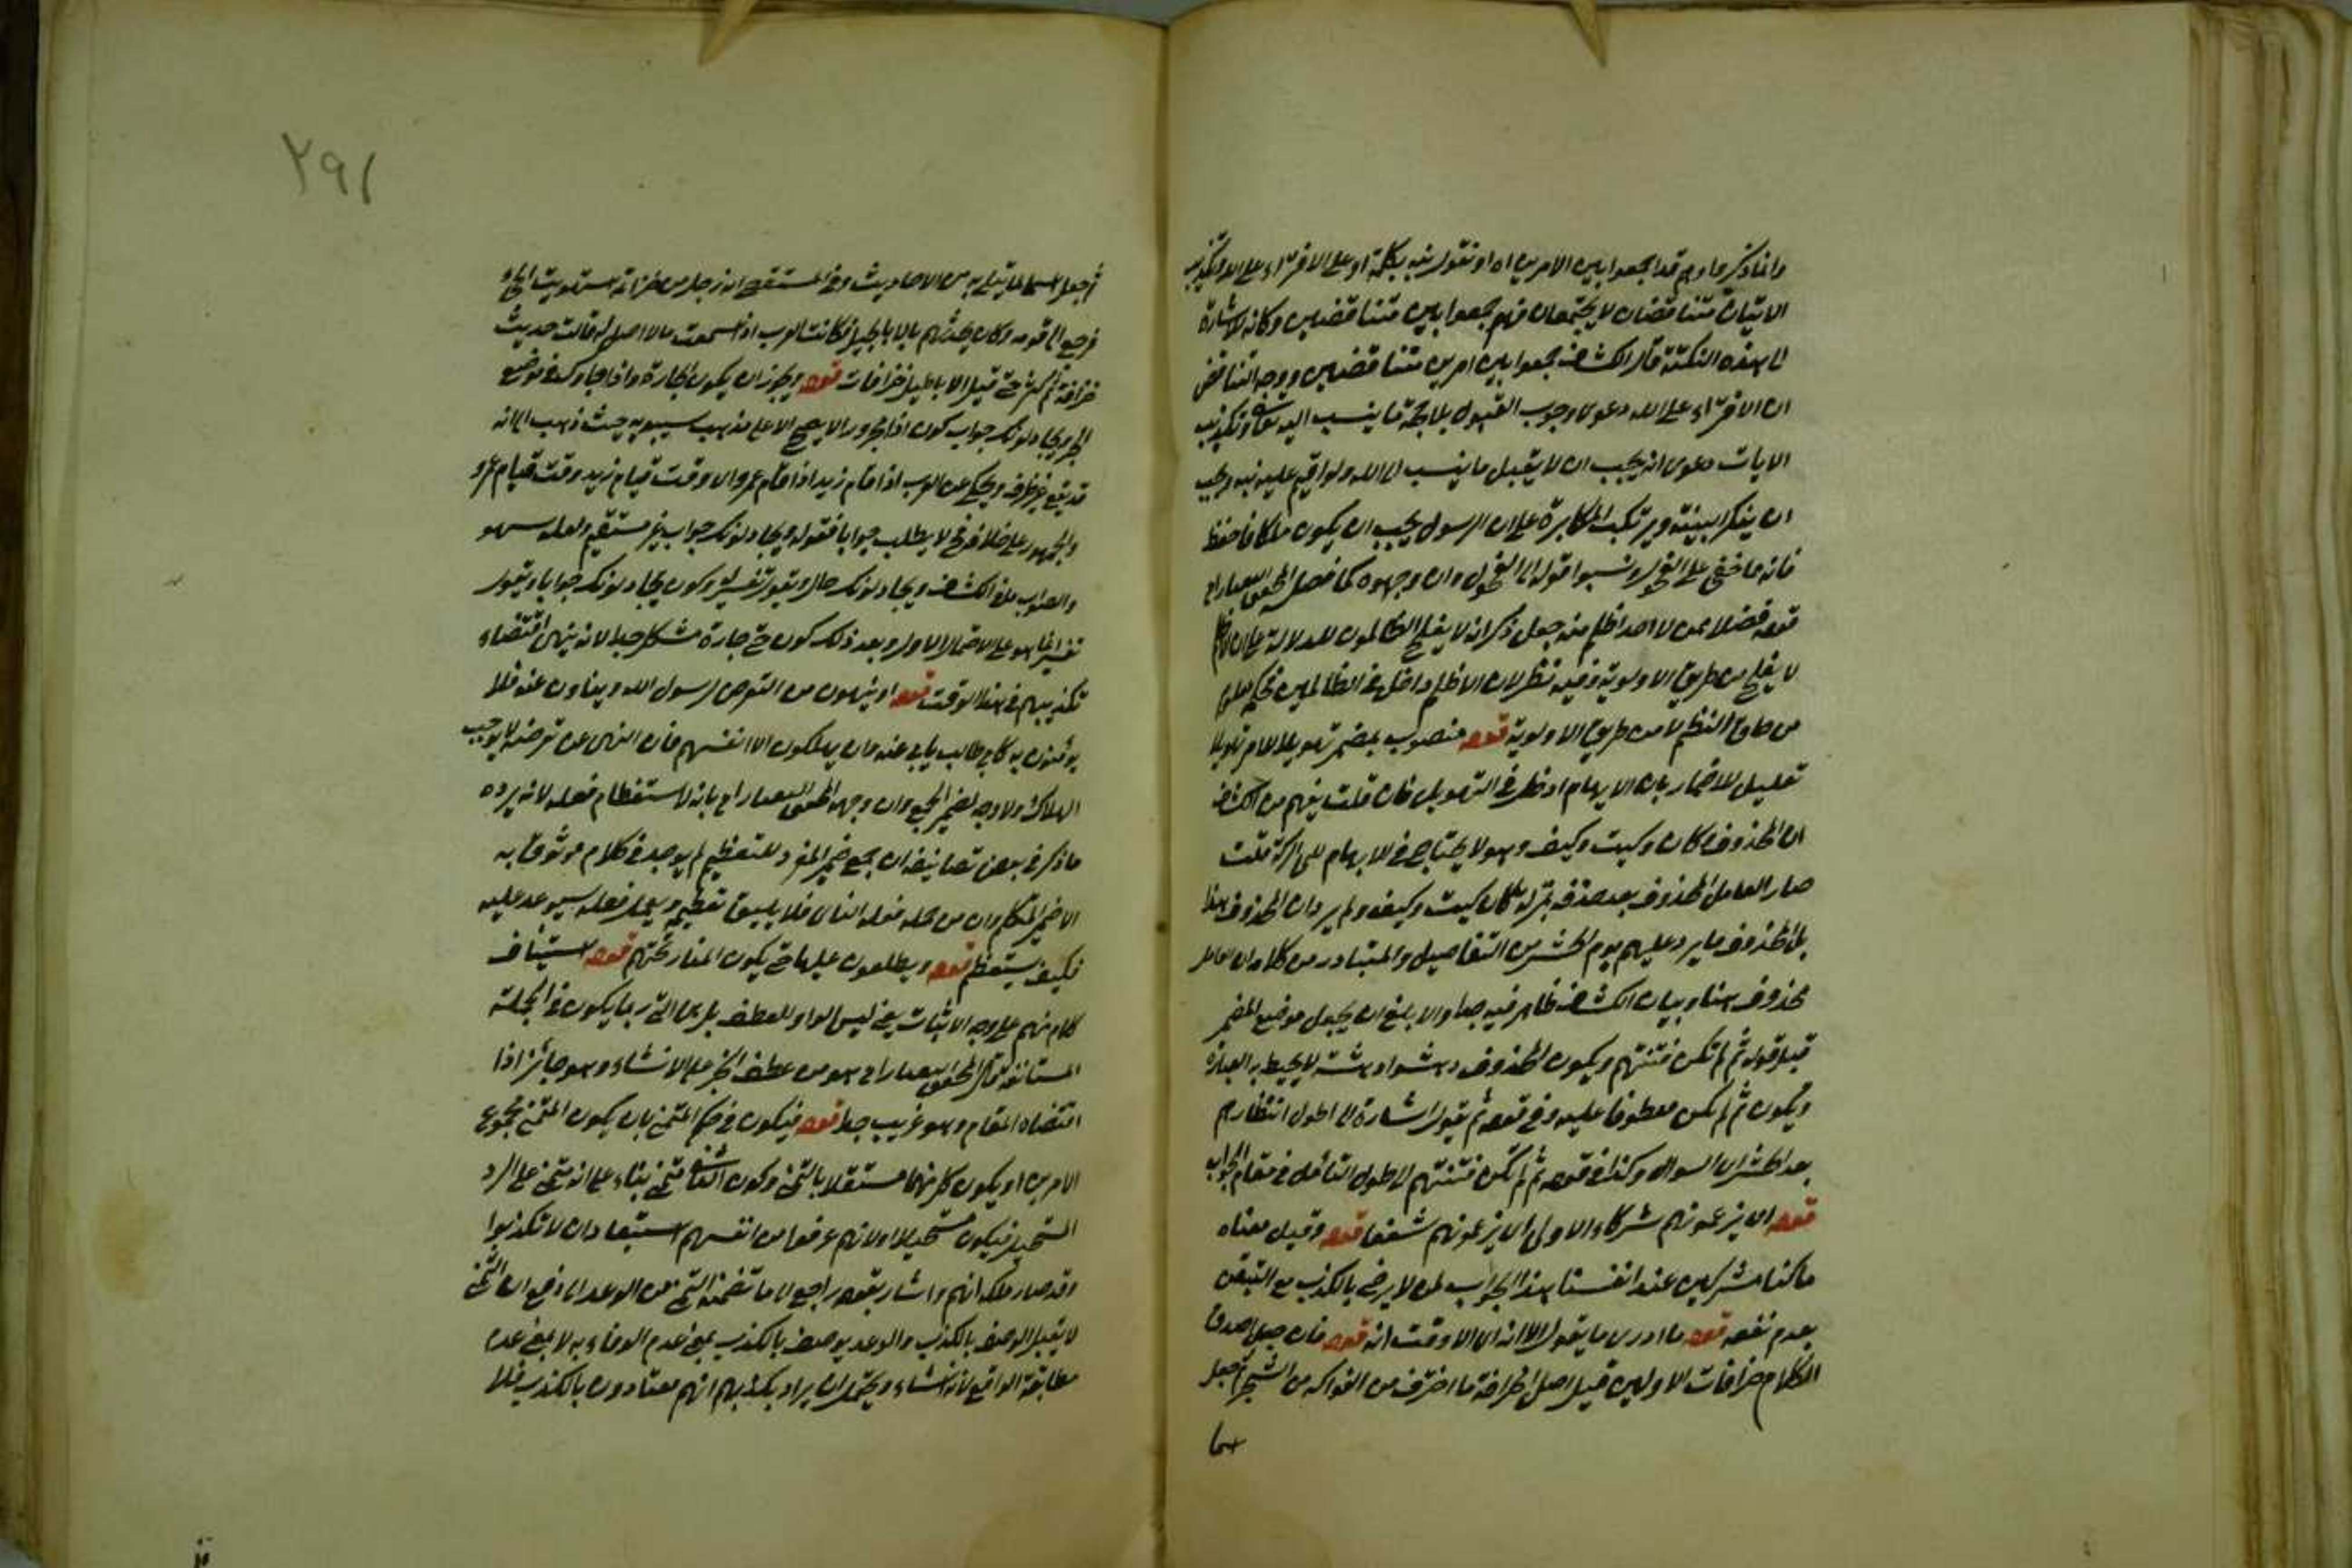 وانما ذكر او وهم قد جمعوا بين الامرين اه او نقول نبه بكلمة او على ان الافتراء على الله وتكذيب
الايات متناقضان لا يجتمعان فهم جمعوا بين متناقضين وكانه الاشارة
الى هذه النكتة قال الكشاف جمعوا بين امرين متناقضين ووجه التناقض
ان الافتراء على الله دعوى وجوب القبول بلا حجة ما ينسب اليه تعالى وتكذيب
الايات دعوى انه يجب ان لا يقبل ما ينسب الى الله ولو اقيم عليه بينة ويجب
ان ينكر البينة ويرتكب المكابرة على ان الرسول يجب ان يكون ملكا فاحفظ
فانه ما خفي على الفحول ونسبوا قوله الى الغفول وان وجهوه كما فصله المحقق التفتازاني
قوله فضلا عمن لا احد اظلم منه جعل ذكر انه لا يفلح الظالمون للدلالة على ان الاظلم
لا يفلح من طريق الاولوية وفيه نظر لان الاظلم داخل في الظالمين فحكمه معلوم
من صادق النظم لا من طريق الاولوية قوله منصوب بمضمر تهويلا للامر تهويلا
تعليل للاضمار بان الابهام ادخل في التهويل فان قلت يفهم من الكشاف
ان المحذوف كان وكيت وكيف وهو لا يحتاج في الابهام الى تركه قلت
صار العامل المحذوف بعد حذفه بمنزلة كان كيت وكيف ولم يرد ان المحذوف هذا
بل المحذوف ما يرد عليهم يوم الحشر من التفاصيل والمتبادر من كلامه ان العامل
محذوف هنا وبيان الكشاف ظاهر فيه جدا والابلغ ان يجعل موضع المضمر
قبل قوله ثم لم تكن فتنتهم ويكون المحذوف دهشوا دهشة لا يحيط به العبارة
ويكون ثم لم تكن معطوفا عليه وفي قوله ثم نقول اشارة الى طول انتظارهم
بعد الحشر الى السوال وكذا في قوله ثم لم تكن فتنتهم الى طول التأمل في مقام الجواب
قوله اي تزعمونهم شركاء الاولى اي تزعمونهم شفعا قوله وقيل معناه
ما كنا مشركين عند انفسنا هذا الجواب لمن لا يرضى بالكذب مع التيقن
بعدم نفعه قوله ما ادرى ما يقول الا انه اي الا وقت انه قوله فان جعل اصدق
الكلام خرافات الاولين قيل اصل الخرافة ما اخترف من الفواكه من الشجر ثم جعل
سما
٢٩١
ثم جعل اسما لما يتلهى به من الاحاديث وفي المستقصى انه رجل من خزاعة استهوته الجن
فرجع الى قومه وكان يحدثهم بالاباطيل فكانت العرب اذا سمعت ما لا اصل له قالت حديث
خرافة ثم كثر حتى قيل للاباطيل خرافات قوله ويجوز ان يكون الجارة واذا جاوك في موضع
الجر ويجادلونك جواب كون اذا مجرورا لا يصح الا على مذهب سيبويه حيث ذهب الى انه
قد يقع غير ظرف ويحكى عن العرب اذا قام زيد اذا قام عمرو اي وقت قيام زيد وقت قيام عمرو
والجمهور على خلافه فح لا يطلب جوابا فقوله ويجادلونك جواب غير مستقيم ولعله سهو
والصواب ما في الكشاف ويجادلونك حال ويقول تفسير له وكون يجادلونك جوابا ويقول
تفسيرا انما هو على الاحتمال الاول وبعد ذلك كون حتى جارة مشكل جدا لانه ينهى اقتضاء
تكذيبهم في هذا الوقت قوله او ينهون من التعرض لرسول الله وينأون عنه فلا
يؤمنون به كابي طالب يأبى عنه وان يهلكون الا انفسهم فان النهى عن تعرضه لا يوجب
الهلاك ولا وجه لضمير الجمع وان وجهه المحقق التفتازاني بانه لاستعظام فعله لانه يرده
ما ذكر في بعض تصانيفه ان جمع ضمير المفرد للتعظيم لم يوجد في كلام موثوق به
الا ضمير المتكلم وان من محله فعله النار فلا يليق تعظيمه ويجعل فعله سيوعد عليه
فكيف يستعظم قوله ويطلعون عليها حتى يكون النار تحتهم قوله استيناف
كلام منهم على وجه الاثبات يعني ليس الواو للعطف بل هي التي ربما يكون في الجملة
المستانفة قال المحقق التفتازاني هو من عطف الخبر على الانشاء وهو جائز اذا
اقتضاه المقام وهو غريب جدا قوله فيكون في حكم المتمني بان يكون المتمنى مجموع
الامرين او يكون كل منهما مستقلا بالتمني وكون الثاني متمنى بناء على انه متمنى على الرد
المستحيل فيكون مستحيلا او لانهم عرفوا من انفسهم استبعاد ان لا تكذبوا
وقد صار ملكة لهم واشار بقوله راجع الى ما تضمنه التمني من الوعد الى دفع ان التمني
لا يقبل الوصف بالكذب والوعد يوصف بالكذب بمعنى عدم الوفاء به لا بمعنى عدم
مطابقة الواقع لانه انشاء ويحتمل ان يراد بكذبهم انهم معتادون بالكذب فلا